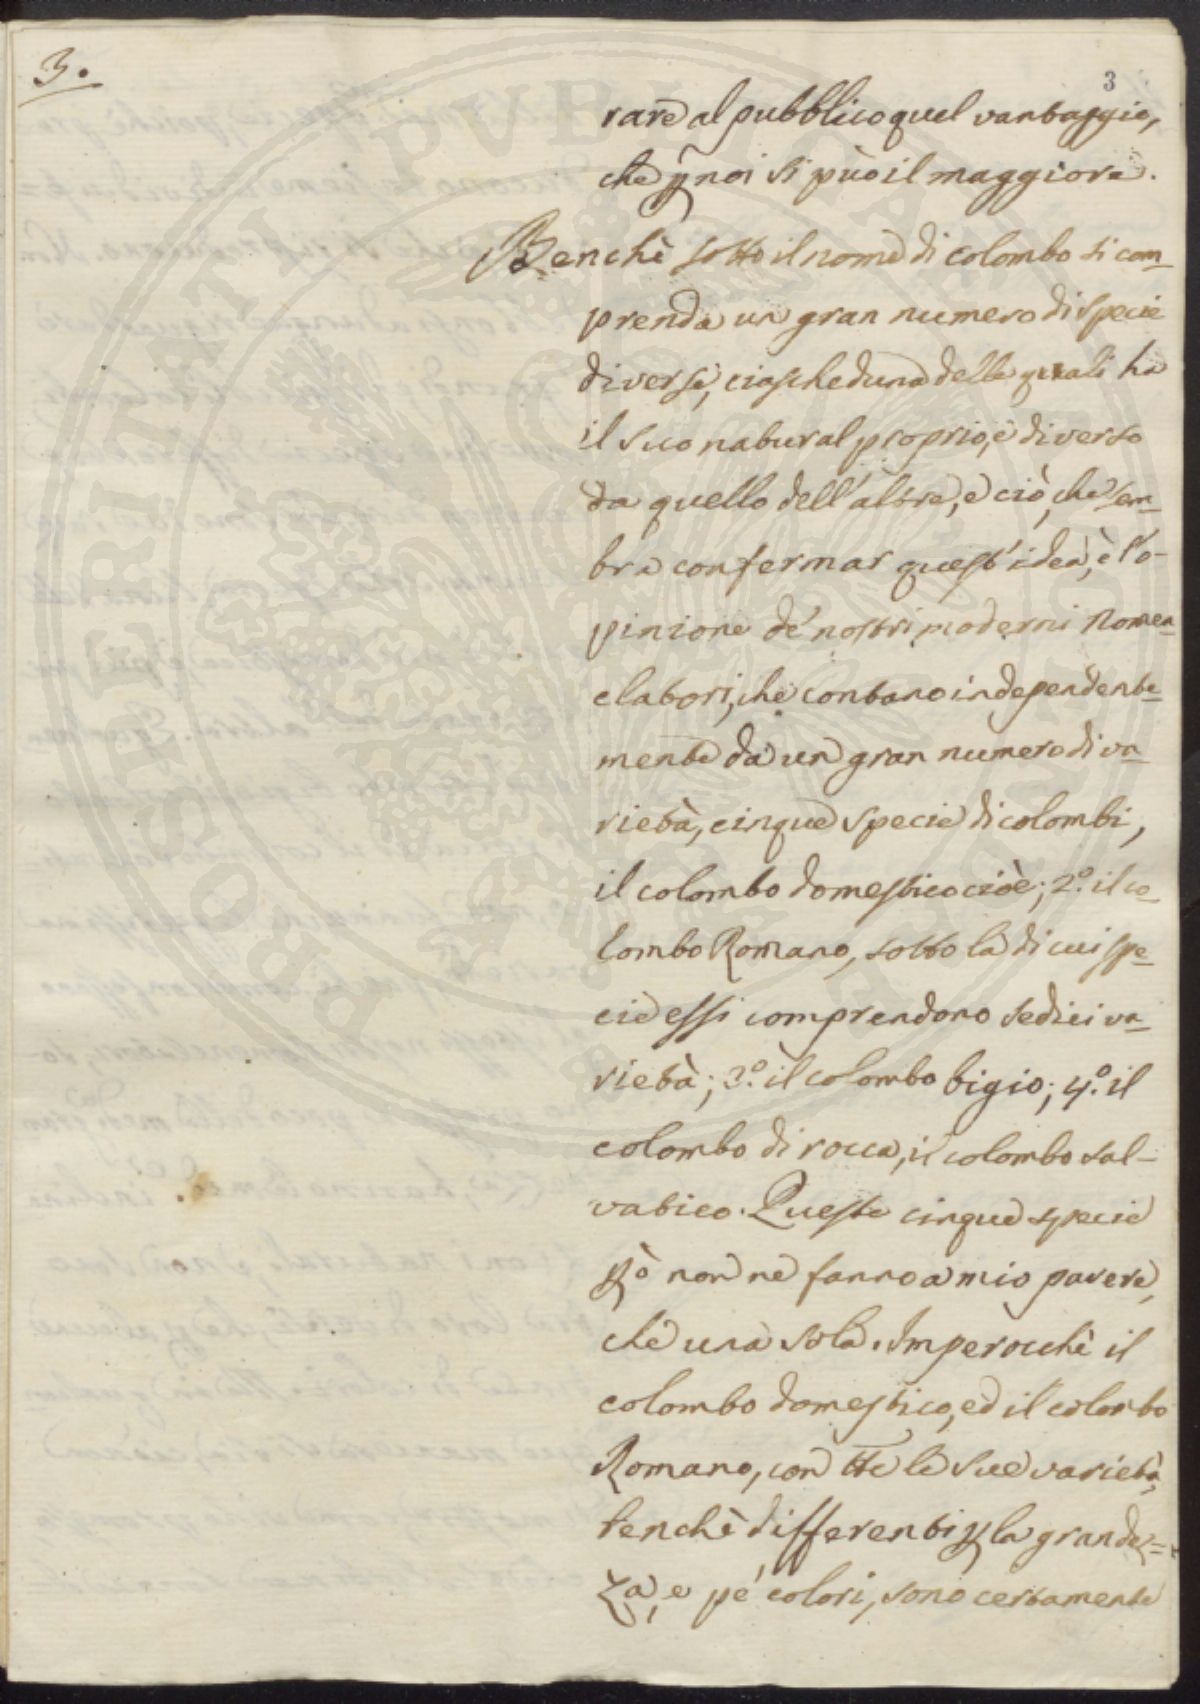 3.
3
rare al pubblico quel vantaggio,
che ꝑ noi si può il maggiore.
Benchè sotto il nome di colombo si com=
prenda un gran numero di specie
diverse, ciascheduna delle quali ha
il suo natural proprio, e diverso
da quello dell'altre, e ciò, che sem=
bra confermar quest'idea, è l'o-
pinione de' nostri moderni Nomen=
clatori, che contano independente=
mente da un gran numero di va=
rietà, cinque specie di colombi,
il colombo domestico cioè; 2.º il co=
lombo Romano, sotto la di cui spe=
cie essi comprendono sedici va=
rietà; 3.º il colombo bigio; 4.º il
colombo di rocca, il colombo sal-
vatico. Queste cinque specie
ꝑò non ne fanno a mio parere,
che una sola. Imperocchè il
colombo domestico, ed il colombo
Romano, con tte le sue varietà,
benchè differenti ꝑ la grandez=
za, e pe' colori, sono certamente
PUBLICAE
PROSPERITATI